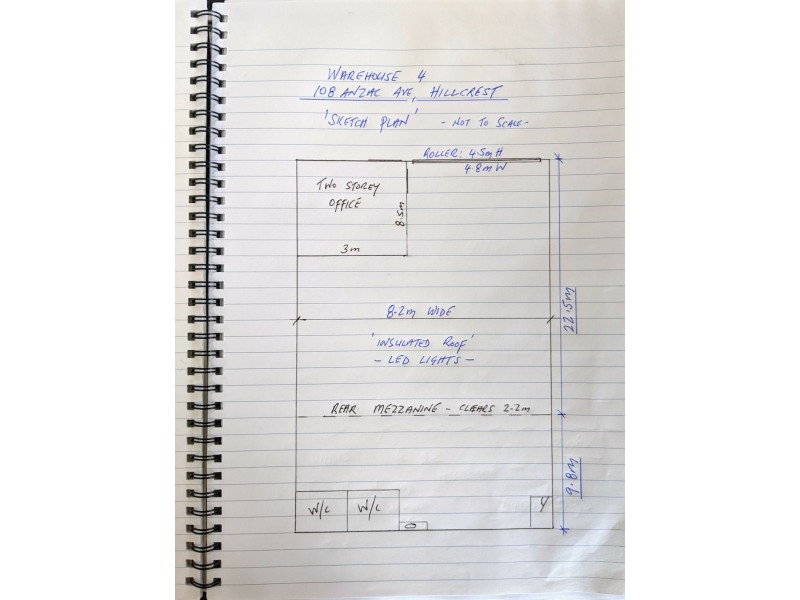 WAREHOUSE 4
108 ANZAC AVE, HILLCREST
'SKETCH PLAN' - NOT TO SCALE -
ROLLER: 4.5m H
4.8m W
TWO STOREY
OFFICE
8.5m
3m
8.2m WIDE
22.5m
'INSULATED ROOF'
- LED LIGHTS -
REAR MEZZANINE - CLEARS 2.2m
9.8m
W/C W/C